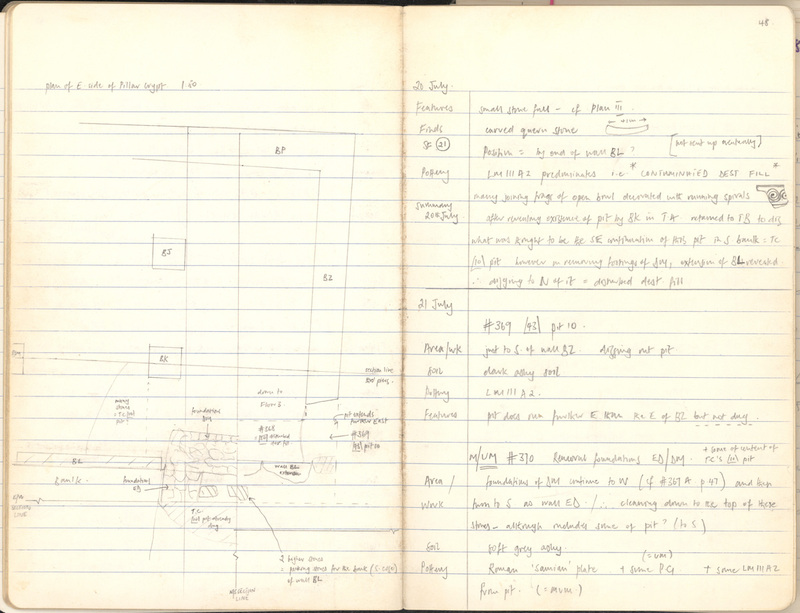 48.
plan of E side of Pillar Crypt 1:20
BP
BJ
BZ
BK
section line
down to
Floor 3
foundations
DM
pit extends
further East
#369
pit 10
#368
many
stones
= TC/
pit
BL
wall BL
extension
foundations
ED
TC
pit already
dug.
SECTION
LINE
2 higher stones
= packing stones for the
of wall BL
LINE
20 July.
Features small stone fall - cf Plan III.
Finds carved quern stone
SF (21) Position = by end of wall BL?
Pottery LM III A2 predominates i.e "CONTAMINATED DEST FILL"
many joining frags of open bowl decorated with running spirals
Summary
20th July. after revealing existence of pit by BK in TA returned to TB to dig
what was thought to be the SE continuation of this pit in S baulk = TC
pit however on removing footings of DM, extension of BL revealed
∴ digging to N of it = disturbed dest. fill
21 July
#369 /43\ pit 10.
Area/wk just to S. of wall BZ. digging out pit
Soil dark ashy soil
Pottery LM III A2.
Features pit does run further E than the E of BZ but not dug.
M/UM #370 Removal foundations ED/DM. + some of content of
TC's pit
Area/ foundations of DM continue to W (cf #367A p 47) and then
Work turn to S as wall ED / ∴ cleaning down to the top of these
stones - although includes some of pit? (to S)
Soil soft grey ashy
(= UM)
Pottery Roman 'Samian' plate + some PG + some LM III A2
from pit. (= MUM)